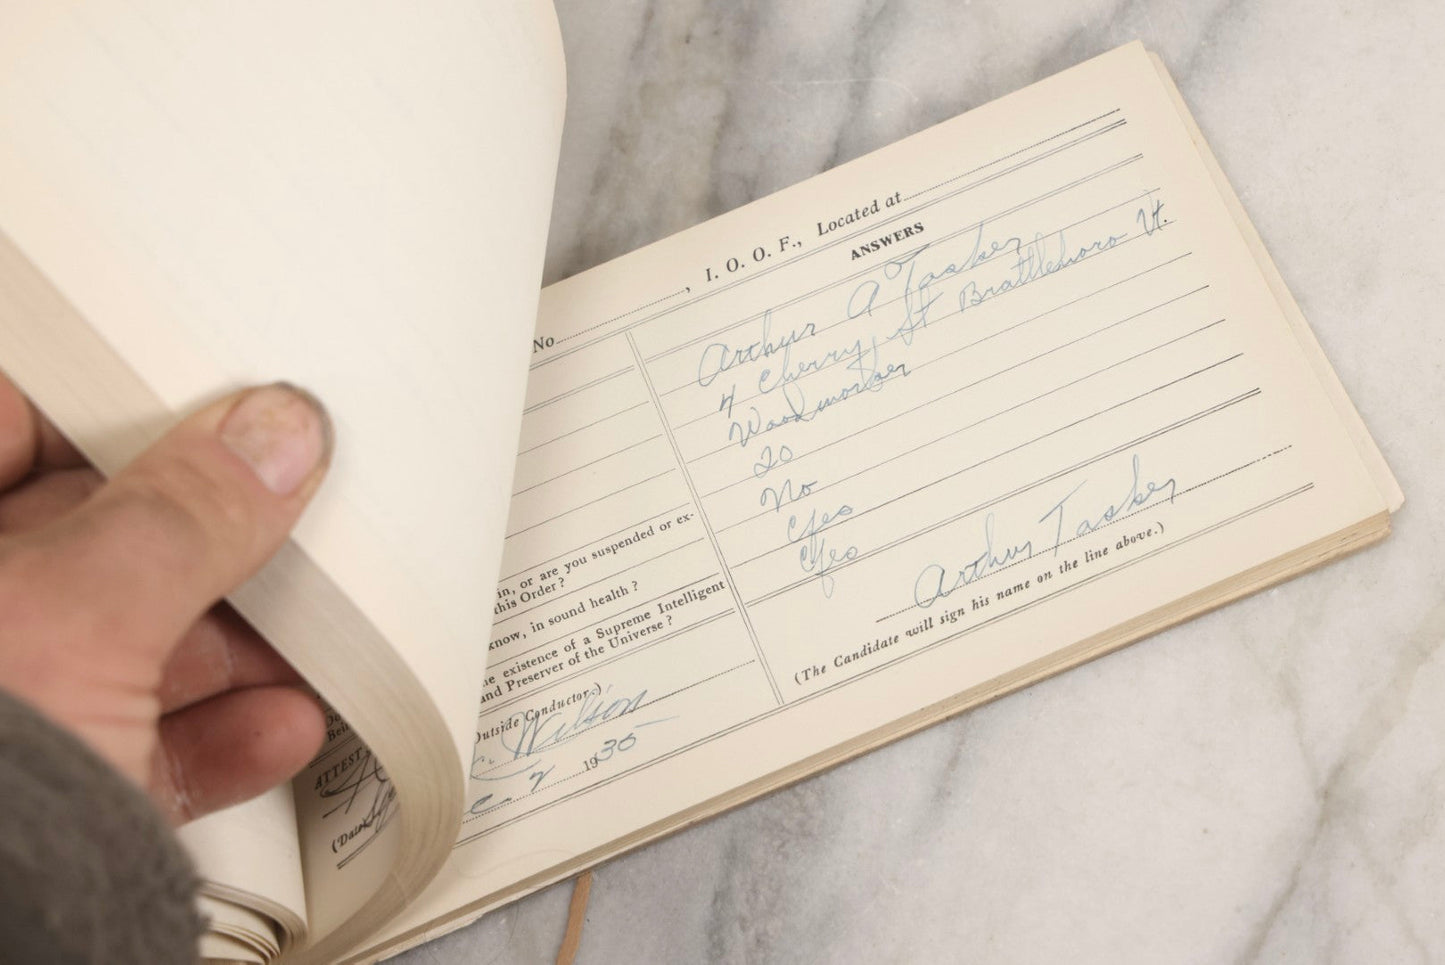 No. , I. O. O. F., Located at
ANSWERS
Arthur A Tasker
4 Cherry St Brattleboro Vt.
Woodworker
20
No
Yes
Yes
in, or are you suspended or ex-
this Order?
know, in sound health?
existence of a Supreme Intelligent
and Preserver of the Universe?
Outside Conductor.)
Wilson
2 1935
Arthur Tasker
(The Candidate will sign his name on the line above.)
ATTEST
(Date